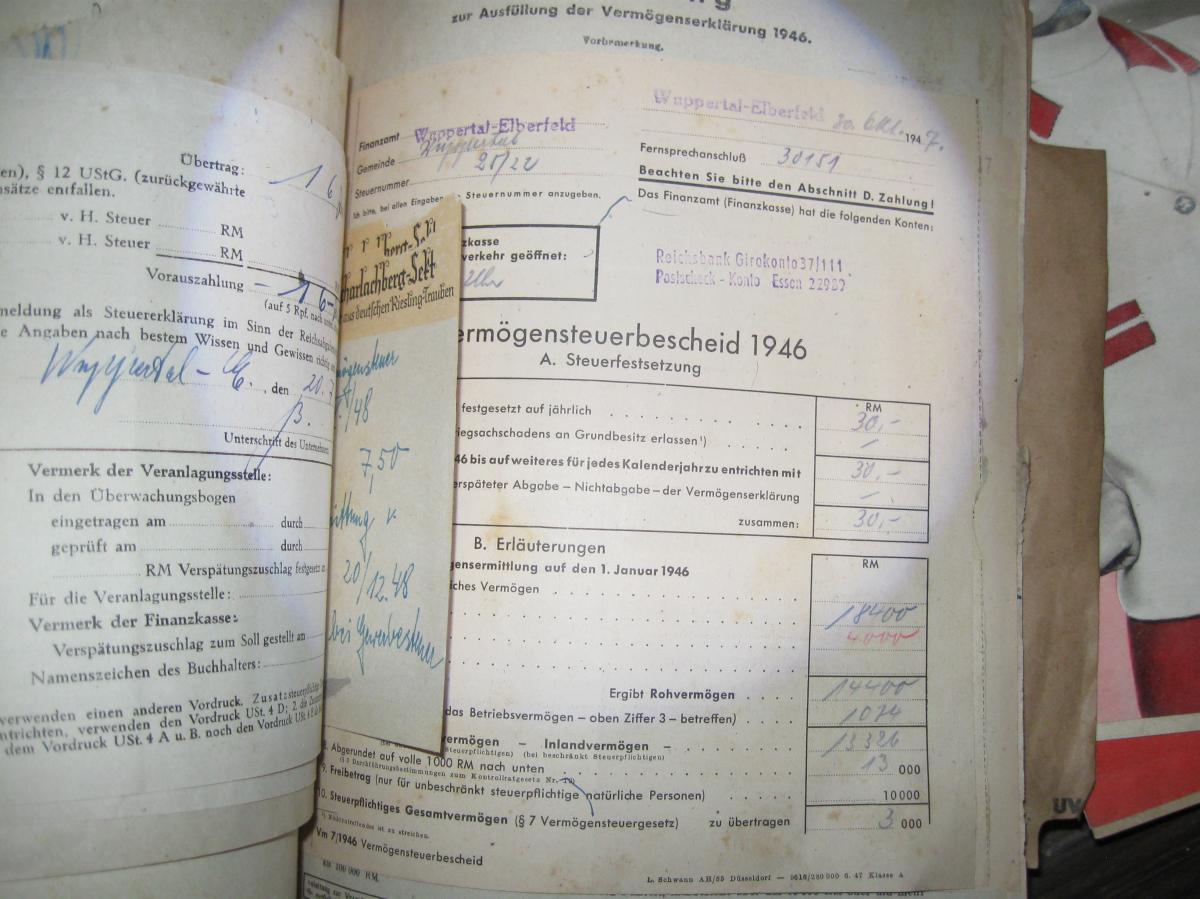 zur Ausfüllung der Vermögenserklärung 1946.
Vorbemerkung.
Übertrag: 16
en), § 12 UStG. (zurückgewährte
nsätze entfallen.
v. H. Steuer RM
v. H. Steuer RM
Vorauszahlung - 16-
(auf 5 Rpf. nach
meldung als Steuererklärung im Sinn der
e Angaben nach bestem Wissen und Gewissen richtig
Wuppertal-E., den 20. 7.
Unterschrift des Unternehmers
Vermerk der Veranlagungsstelle:
In den Überwachungsbogen
eingetragen am durch
geprüft am durch
RM Verspätungszuschlag festgesetzt
Für die Veranlagungsstelle:
Vermerk der Finanzkasse:
Verspätungszuschlag zum Soll gestellt am
Namenszeichen des Buchhalters:
verwenden einen anderen Vordruck.
ntrichten, verwenden den Vordruck USt. 4 D;
dem Vordruck USt. 4 A u. B. noch den Vordruck
harlachberg-Sekt
aus deutschen Riesling-Trauben
mögensteuer
/48
7,50
20/12.48
bei Gewerbesteuer
Finanzamt Wuppertal-Elberfeld
Gemeinde Wuppertal
Steuernummer 25/22
Ich bitte, bei allen Eingaben Steuernummer anzugeben.
Wuppertal-Elberfeld 30. Okt. 1947.
Fernsprechanschluß 30151
Beachten Sie bitte den Abschnitt D. Zahlung!
Das Finanzamt (Finanzkasse) hat die folgenden Konten:
zkasse
verkehr geöffnet:
Uhr
Reichsbank Girokonto 37/111
Postscheck - Konto Essen 22982
ermögensteuerbescheid 1946
A. Steuerfestsetzung
RM
festgesetzt auf jährlich 30,-
iegsachschadens an Grundbesitz erlassen¹) -
46 bis auf weiteres für jedes Kalenderjahr zu entrichten mit 30,-
erspäteter Abgabe – Nichtabgabe – der Vermögenserklärung -
zusammen: 30,-
B. Erläuterungen
RM
gensermittlung auf den 1. Januar 1946
iches Vermögen
18400
4000
Ergibt Rohvermögen 14400
das Betriebsvermögen – oben Ziffer 3 – betreffen) 1074
ermögen – Inlandvermögen – 13326
Steuerpflichtigen) (bei beschränkt Steuerpflichtigen)
8. Abgerundet auf volle 1000 RM nach unten 13 000
Durchführungsbestimmungen zum Kontrollratgesetz Nr.
9. Freibetrag (nur für unbeschränkt steuerpflichtige natürliche Personen) 10000
10. Steuerpflichtiges Gesamtvermögen (§ 7 Vermögensteuergesetz) zu übertragen 3 000
¹) Nichtzutreffendes ist zu streichen.
Vm 7/1946 Vermögensteuerbescheid
L. Schwann AH/55 Düsseldorf — 9616/280 000 6. 47 Klasse A
100 000 RM.
UV